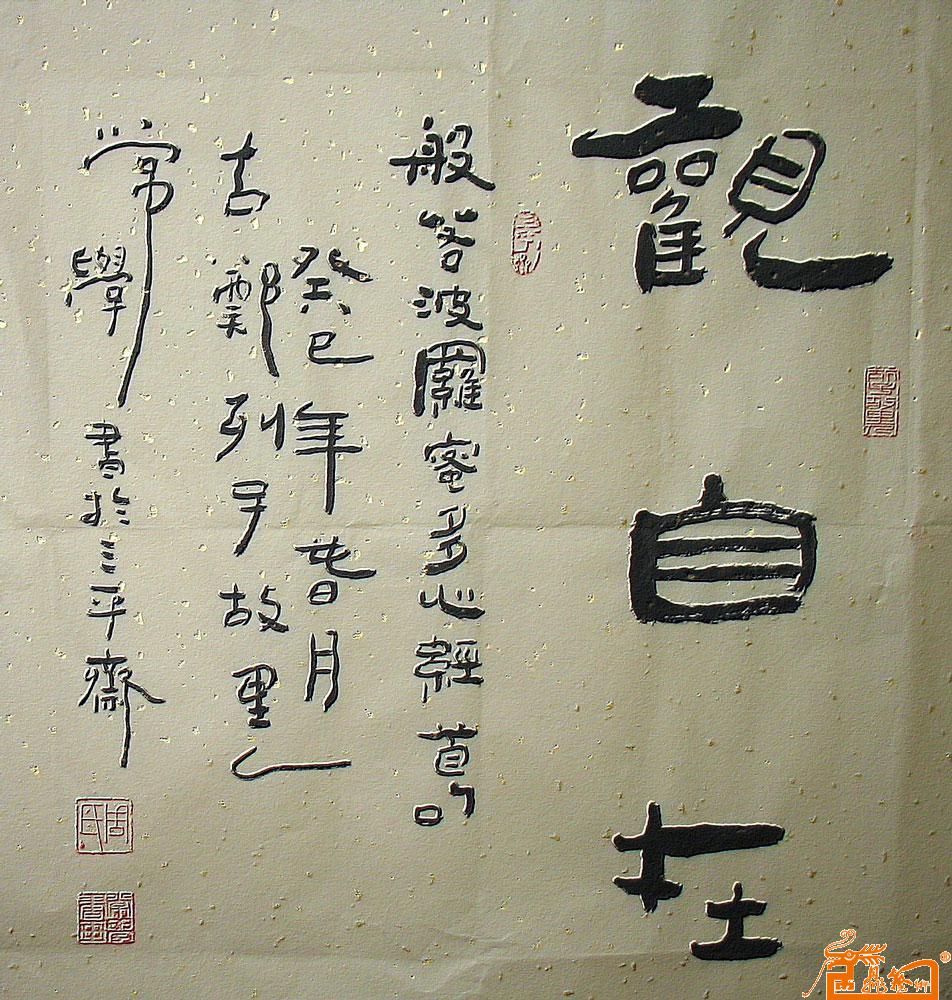 觀自在
般若波羅蜜多心經首句
癸巳年春月
古鄭列子故里人
常學書於三平齋
周氏